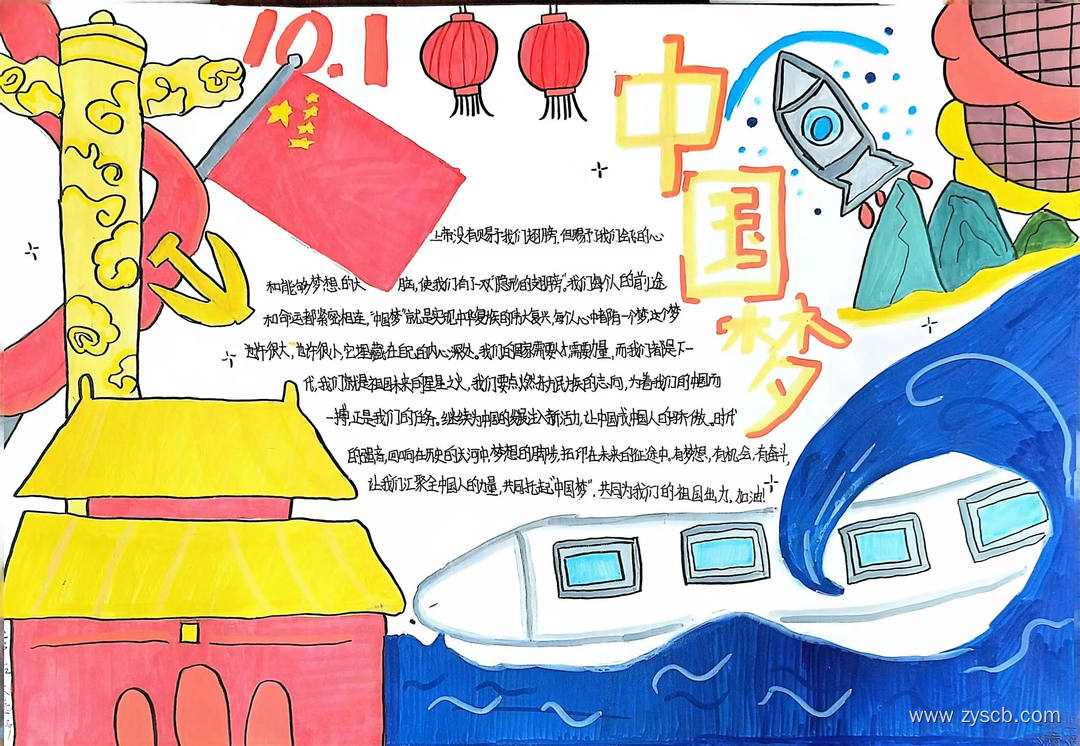 10.1
中国梦
上帝没有赐予我们翅膀,但赐予我们会飞的心
和能够梦想的大脑,使我们有了一双"隐形的翅膀"。我们每个人的前途
和命运都紧密相连,"中国梦"就是实现中华民族的伟大复兴,每个人心中都有一个梦,这个梦
也许很大,也许很小,它埋藏在自己的内心深处。我们的国家需要人才需要力量,而我们者是下一
代,我们就是祖国未来的星星之火,我们要点燃中华民族的志向,为着我们的中国而
一搏,正是我们的任务。继续为中国的发展注入新活力,让中国成中国人的骄傲。时代
的强音,回响在历史的长河中,梦想的脚步,拓印在未来的征途中。有梦想,有机会,有奋斗,
让我们汇聚全中国人的力量,共同托起"中国梦",共同为我们的祖国出力,加油!
www.zyscb.com